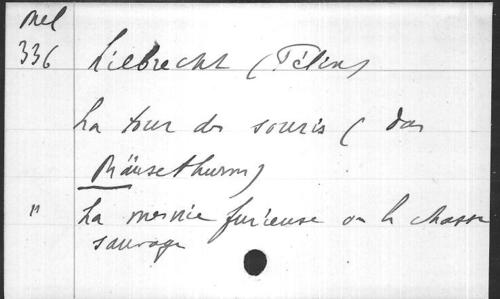 Mel
336 Liebrecht (Félix)
La tour des souris (das
Mäusethurm)
" La mesnie furieuse ou la chasse
sauvage